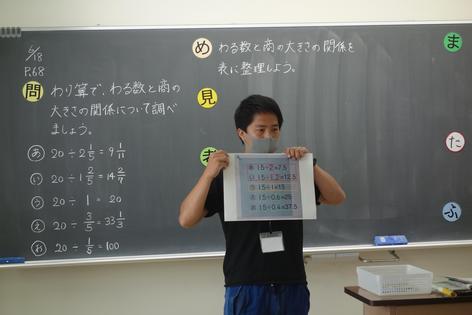 6/18
P.68
問 わり算で、わる数と商の
大きさの関係について調べ
ましょう。
あ 20÷2 2/5=9 1/11
い 20÷1 2/5=14 2/7
う 20÷1=20
え 20÷3/5=33 1/3
お 20÷1/5=100
め わる数と商の大きさの関係を
表に整理しよう。
見
考
15÷2=7.5
15÷1.2=12.5
15÷1=15
15÷0.6=25
15÷0.4=37.5
ま
た
ふ